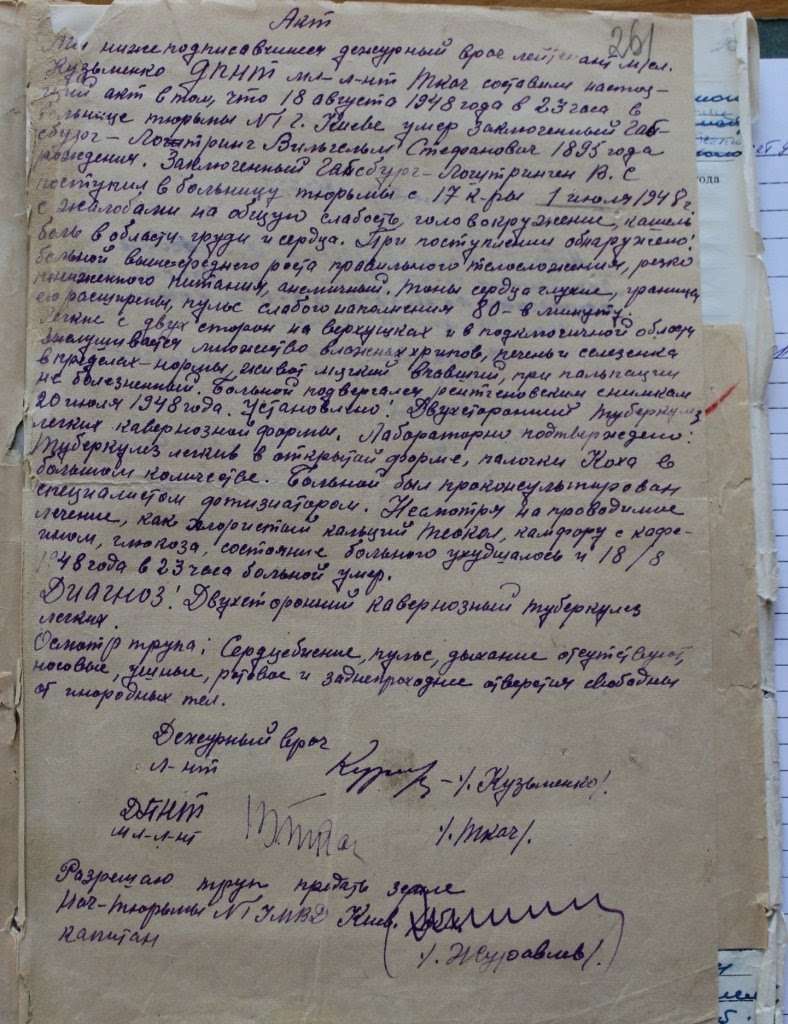 Акт
261
Мы нижеподписавшиеся дежурный врач лейтенант м/сл.
Кузьменко ДПНТ мл-л-нт Ткач составили настоя-
щий акт в том, что 18 августа 1948 года в 23 часа в
больнице тюрьмы №1 г. Киеве умер Заключенный Габ-
сбург-Лоштринг Вильгельм Стефанович 1895 года
рождения. Заключенный Габсбург-Лоштринген В. С
поступил в больницу тюрьмы с 17 к-ры 1 июля 1948 г.
с жалобами на общую слабость, головокружение, кашель
боль в области груди и сердца. При поступлении обнаружено:
больной выше-среднего роста правильного телосложения, резко
пониженного питания, анемичный. Тоны сердца глухие, границы
его расширены, пульс слабого наполнения 80-в минуту.
Легкие с двух сторон на верхушках и в подключичной области
выслушивается множество влажных хрипов, печень и селезенка
в пределах-нормы, живот мягкий впавший, при пальпации
не болезненный. Больной подвергался рентгеновским снимкам
20 июля 1948 года. Установлено: Двухсторонний туберкулез
легких кавернозной формы. Лабораторно подтверждено:
Туберкулез легкив в открытой форме, палочки Коха в
большом количестве. Больной был проконсультирован
специалистом фтизиатором. Несмотря на проводимое
лечение, как хлористый кальций теокол, камфору с кофе-
ином, глюкоза, состояние больного ухудшалось и 18/8
1948 года в 23 часа больной умер.
Диагноз! Двухсторонний кавернозный туберкулез
легких.
Осмотр трупа: Сердцебиение, пульс, дыхание отсутствуют,
носовые, ушные, ротовое и заднепроходние отверстия свободны
от инородных тел.
Дежурный врач
л-нт /. Кузьменко/.
ДПНТ
мл-л-нт Ткач /. Ткач/.
Разрешаю труп предать земле
Нач-тюрьмы №1 УМВД Киев.
капитан /. Журавлев/.
года